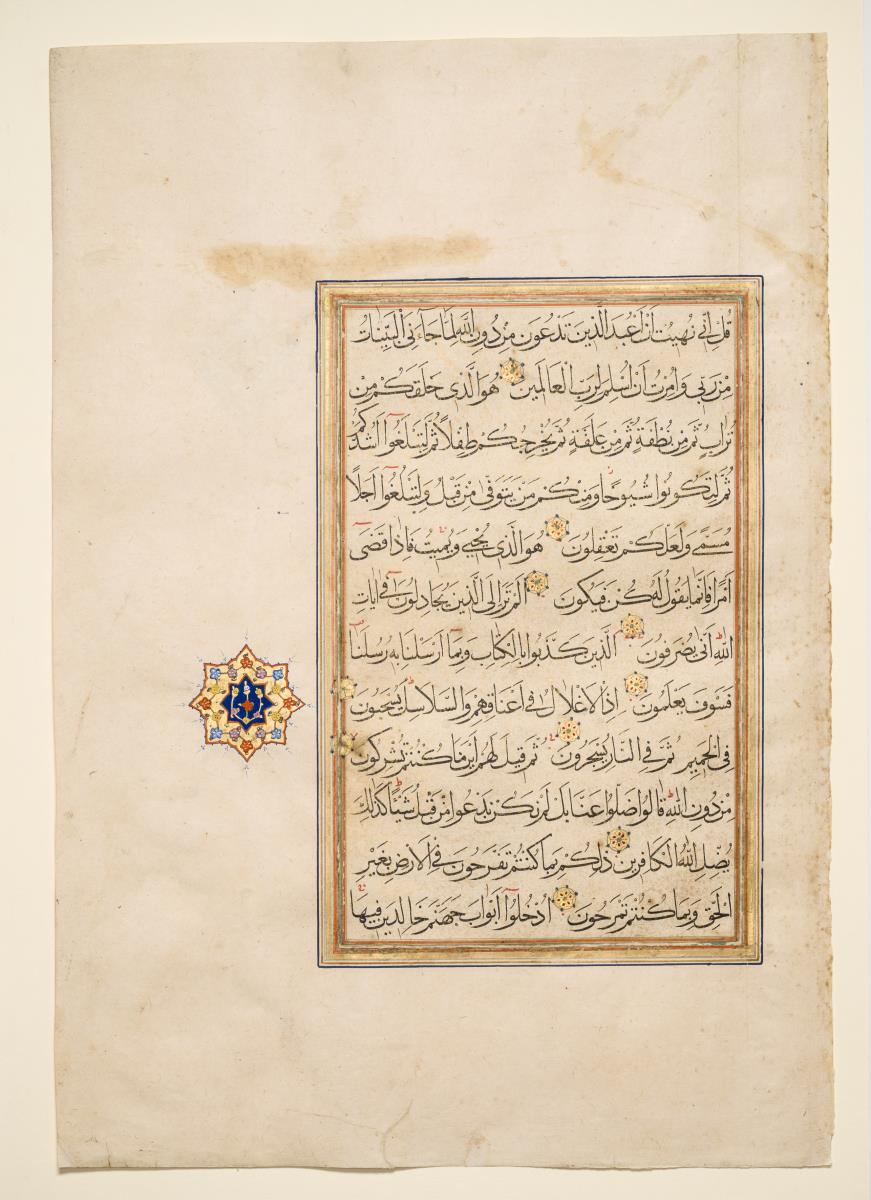 قُل اِنّي نُهيتُ اَنْ اَعْبُدَ الَّذينَ تَدْعُونَ مِنْ دُونِ اللهِ لَمّا جَآءَنِيَ الْبَيِّناتُ
مِنْ رَبّي وَاُمِرْتُ اَنْ اُسْلِمَ لِرَبِّ الْعالَمينَ هُوَ الَّذي خَلَقَكُمْ مِنْ
تُرابٍ ثُمَّ مِنْ نُطْفَةٍ ثُمَّ مِنْ عَلَقَةٍ ثُمَّ يُخْرِجُكُمْ طِفْلاً ثُمَّ لِتَبْلُغُوآ اَشُدَّكُمْ
ثُمَّ لِتَكُونُوا شُيُوخًا وَمِنْكُمْ مَنْ يُتَوَفّى مِنْ قَبْلُ وَلِتَبْلُغُوآ اَجَلاً
مُسَمًّى وَلَعَلَّكُمْ تَعْقِلُونَ هُوَ الَّذي يُحْيي وَيُميتُ فَاِذا قَضَى
اَمْرًا فَاِنَّما يَقُولُ لَهُ كُنْ فَيَكُونُ اَلَمْ تَرَ اِلَى الَّذينَ يُجادِلُونَ في اياتِ
اللهِ اَنّى يُصْرَفُونَ اَلَّذينَ كَذَّبُوا بِالْكِتابِ وَبِمآ اَرْسَلْنا بِه رُسُلَنا
فَسَوْفَ يَعْلَمُونَ اِذِ الْاَغْلالُ في اَعْناقِهِمْ وَالسَّلاسِلُ يُسْحَبُونَ
فِي الْحَميمِ ثُمَّ فِي النّارِ يُسْجَرُونَ ثُمَّ قيلَ لَهُمْ اَيْنَ ما كُنْتُمْ تُشْرِكُونَ
مِنْ دُونِ اللهِ قالُوا ضَلُّوا عَنّا بَلْ لَمْ نَكُنْ نَدْعُوا مِنْ قَبْلُ شَيْئًا كَذلِكَ
يُضِلُّ اللهُ الْكافِرينَ ذلِكُمْ بِما كُنْتُمْ تَفْرَحُونَ فِي الْاَرْضِ بِغَيْرِ
الْحَقِّ وَبِما كُنْتُمْ تَمْرَحُونَ اُدْخُلُوآ اَبْوابَ جَهَنَّمَ خالِدينَ فيها